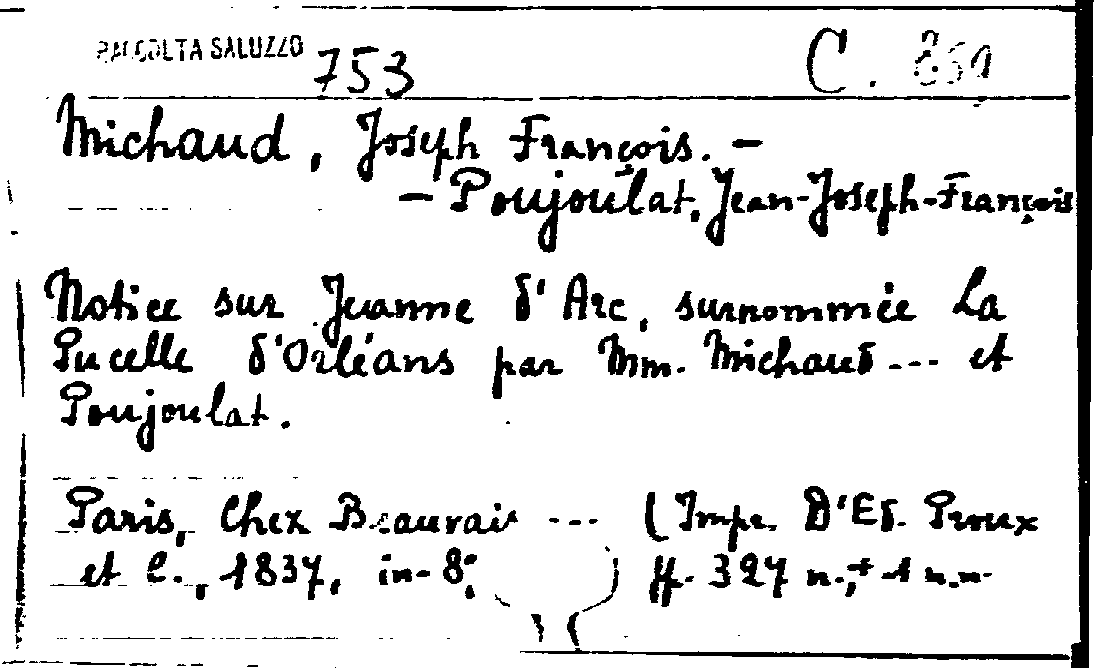 RACCOLTA SALUZZO 753 C. 859
Michaud, Joseph François. –
– Poujoulat, Jean-Joseph-François
Notice sur Jeanne d'Arc, surnommée La
Pucelle d'Orléans par Mm. Michaud --- et
Poujoulat.
Paris, Chez Beauvais --- (Impr. D'Ed. Proux
et C., 1837, in-8°; ) ff. 327 n.,+ 1 n.n.